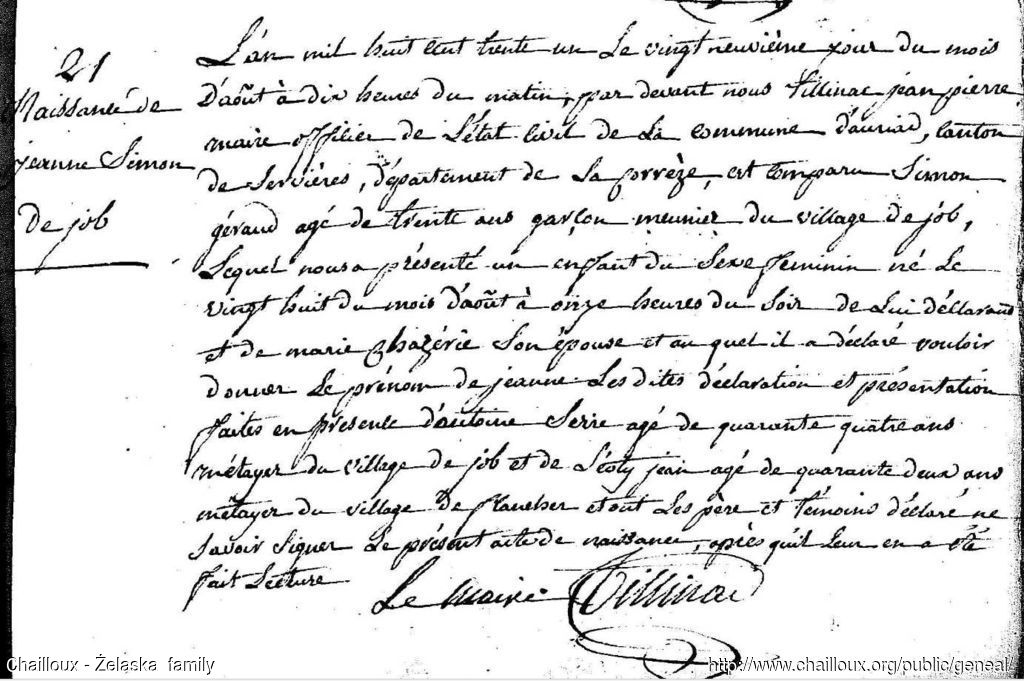 21
Naissance de
jeanne Simon
de job
L'an mil huit cent trente un Le vingt neuvième jour du mois
D'août à dix heures du matin, par devant nous Tillinac jean pierre
maire officier de L'état civil de La commune d'auriac, canton
de Servières, département de La corrèze, est comparu Simon
géraud agé de trente ans garçon meunier du village de job,
Lequel nous a présenté un enfant du Sexe feminin né Le
vingt huit du mois d'août à onze heures du Soir de Lui déclarant
et de marie Chazérie Son épouse et au quel il a déclaré vouloir
donner Le prénom de jeanne. Les dites déclaration et présentation
faites en présence d'antoine Serre agé de quarante quatre ans
métayer du village de job et de jean agé de quarante deux ans
métayer du village de et ont Les père et témoins déclaré ne
Savoir Signer Le présent acte de naissance, après qu'il Leur en a été
fait Lecture
Le Maire Tillinac
Chailloux - Żelaska family
http://www.chailloux.org/public/geneal/